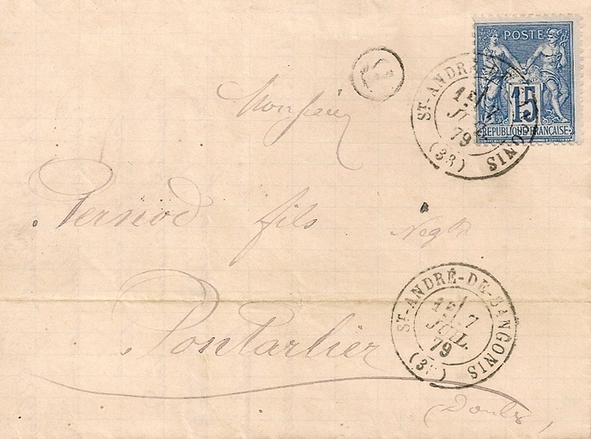 POSTE
15
REPUBLIQUE FRANCAISE
ST-ANDRÉ-DE-SANGONIS
7
JUIL.
79
(33)
Monsieur
Pernod fils Negt
ST-ANDRÉ-DE-SANGONIS
1E/
7
JUIL.
79
(33)
Pontarlier
Doubs